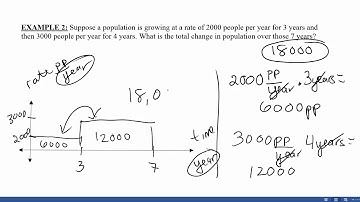 EXAMPLE 2: Suppose a population is growing at a rate of 2000 people per year for 3 years and
then 3000 people per year for 4 years. What is the total change in population over those 7 years?
18000
rate pp
year
3000
2000
6000
12000
18,0
3
7
time
year
2000 pp/year · 3 years =
6000 pp
3000 pp/year 4 years =
12000